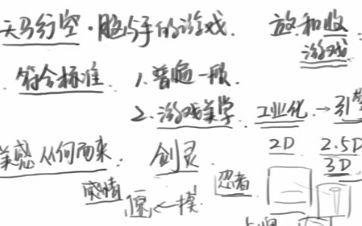 天马行空·脑与手的游戏. 放和收
游戏
符合标准 1. 普遍一般
2. 游戏美学 工业化 → 引擎
美感从何而来. 剑灵 2D 2.5D
3D
感情 ← 模 忍者